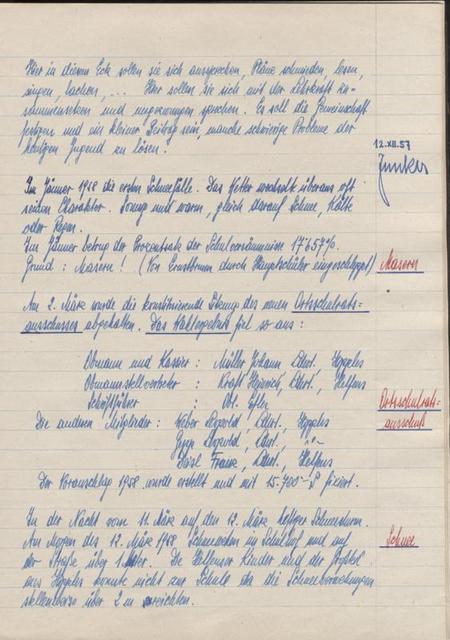 Hier in diesem Eck sollen sie sich aussprechen, Pläne schmieden, lesen,
singen, lachen, ... Hier sollen sie sich mit der Lehrkraft zu-
sammensetzen und ungezwungen sprechen. Es soll die Gemeinschaft
festigen und ein kleiner Beitrag sein, manche schwierige Probleme der
heutigen Jugend zu lösen!
12.XII.57
Junker
Im Jänner 1958 die ersten Schneefälle. Das Wetter wechselte überaus oft
seinen Charakter. Sonnig und warm, gleich darauf Schnee, Kälte
oder Regen.
Im Jänner betrug der Prozentsatz der Schulversäumnisse 17'657%.
Grund: Masern! (Von Ernstbrunn durch Hauptschüler eingeschleppt)
Masern
Am 2. März wurde die konstituierende Sitzung des neuen Ortsschulrats-
ausschusses abgehalten. Das Wahlergebnis fiel so aus:
Obmann und Kassier: Müller Johann, Ldwt.,
Obmannstellvertreter: Kraft Heinrich, Ldwt.,
Schriftführer:
Ortsschulrats-
ausschuß
Die anderen Mitglieder: Weber Leopold, Ldwt.,
Leopold, Ldwt., "
Franz, Ldwt.,
Der Voranschlag 1958 wurde erstellt und mit 15.700 S fixiert.
In der Nacht vom 11. März auf den 12. März heftiger Schneesturm.
Am Morgen des 12. März 1958 Schneewachten im Schulhof und auf
der Straße über 1 Meter. Die Kinder und der Großteil
aus konnte nicht zur Schule, da die Schneeverwehungen
stellenweise über 2 m erreichten.
Schnee